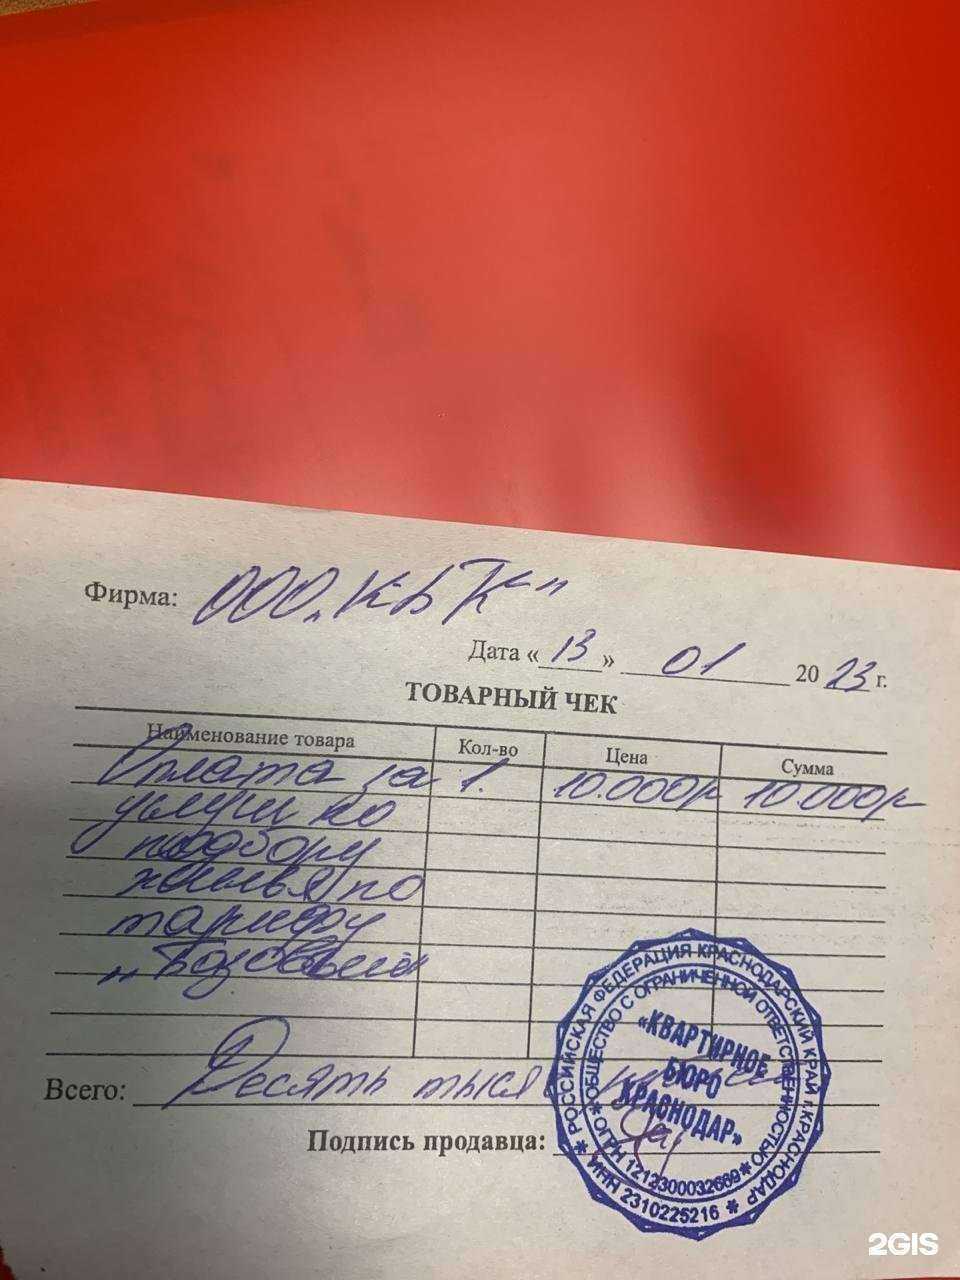 Фирма: ООО „КБК"
Дата « 13 » 01 20 23 г.
ТОВАРНЫЙ ЧЕК
Наименование товара Кол-во Цена Сумма
Оплата за 1. 10.000р 10.000р
услуги по
подбору
жилья по
тарифу
„Базовый"
Всего: Десять тысяч
Подпись продавца:
* РОССИЙСКАЯ ФЕДЕРАЦИЯ КРАСНОДАРСКИЙ КРАЙ г.КРАСНОДАР
* ИНН 2310225216 *
* ОБЩЕСТВО С ОГРАНИЧЕННОЙ ОТВЕТСТВЕННОСТЬЮ *
ОГРН 1212300032689
«КВАРТИРНОЕ
БЮРО
КРАСНОДАР»
2GIS